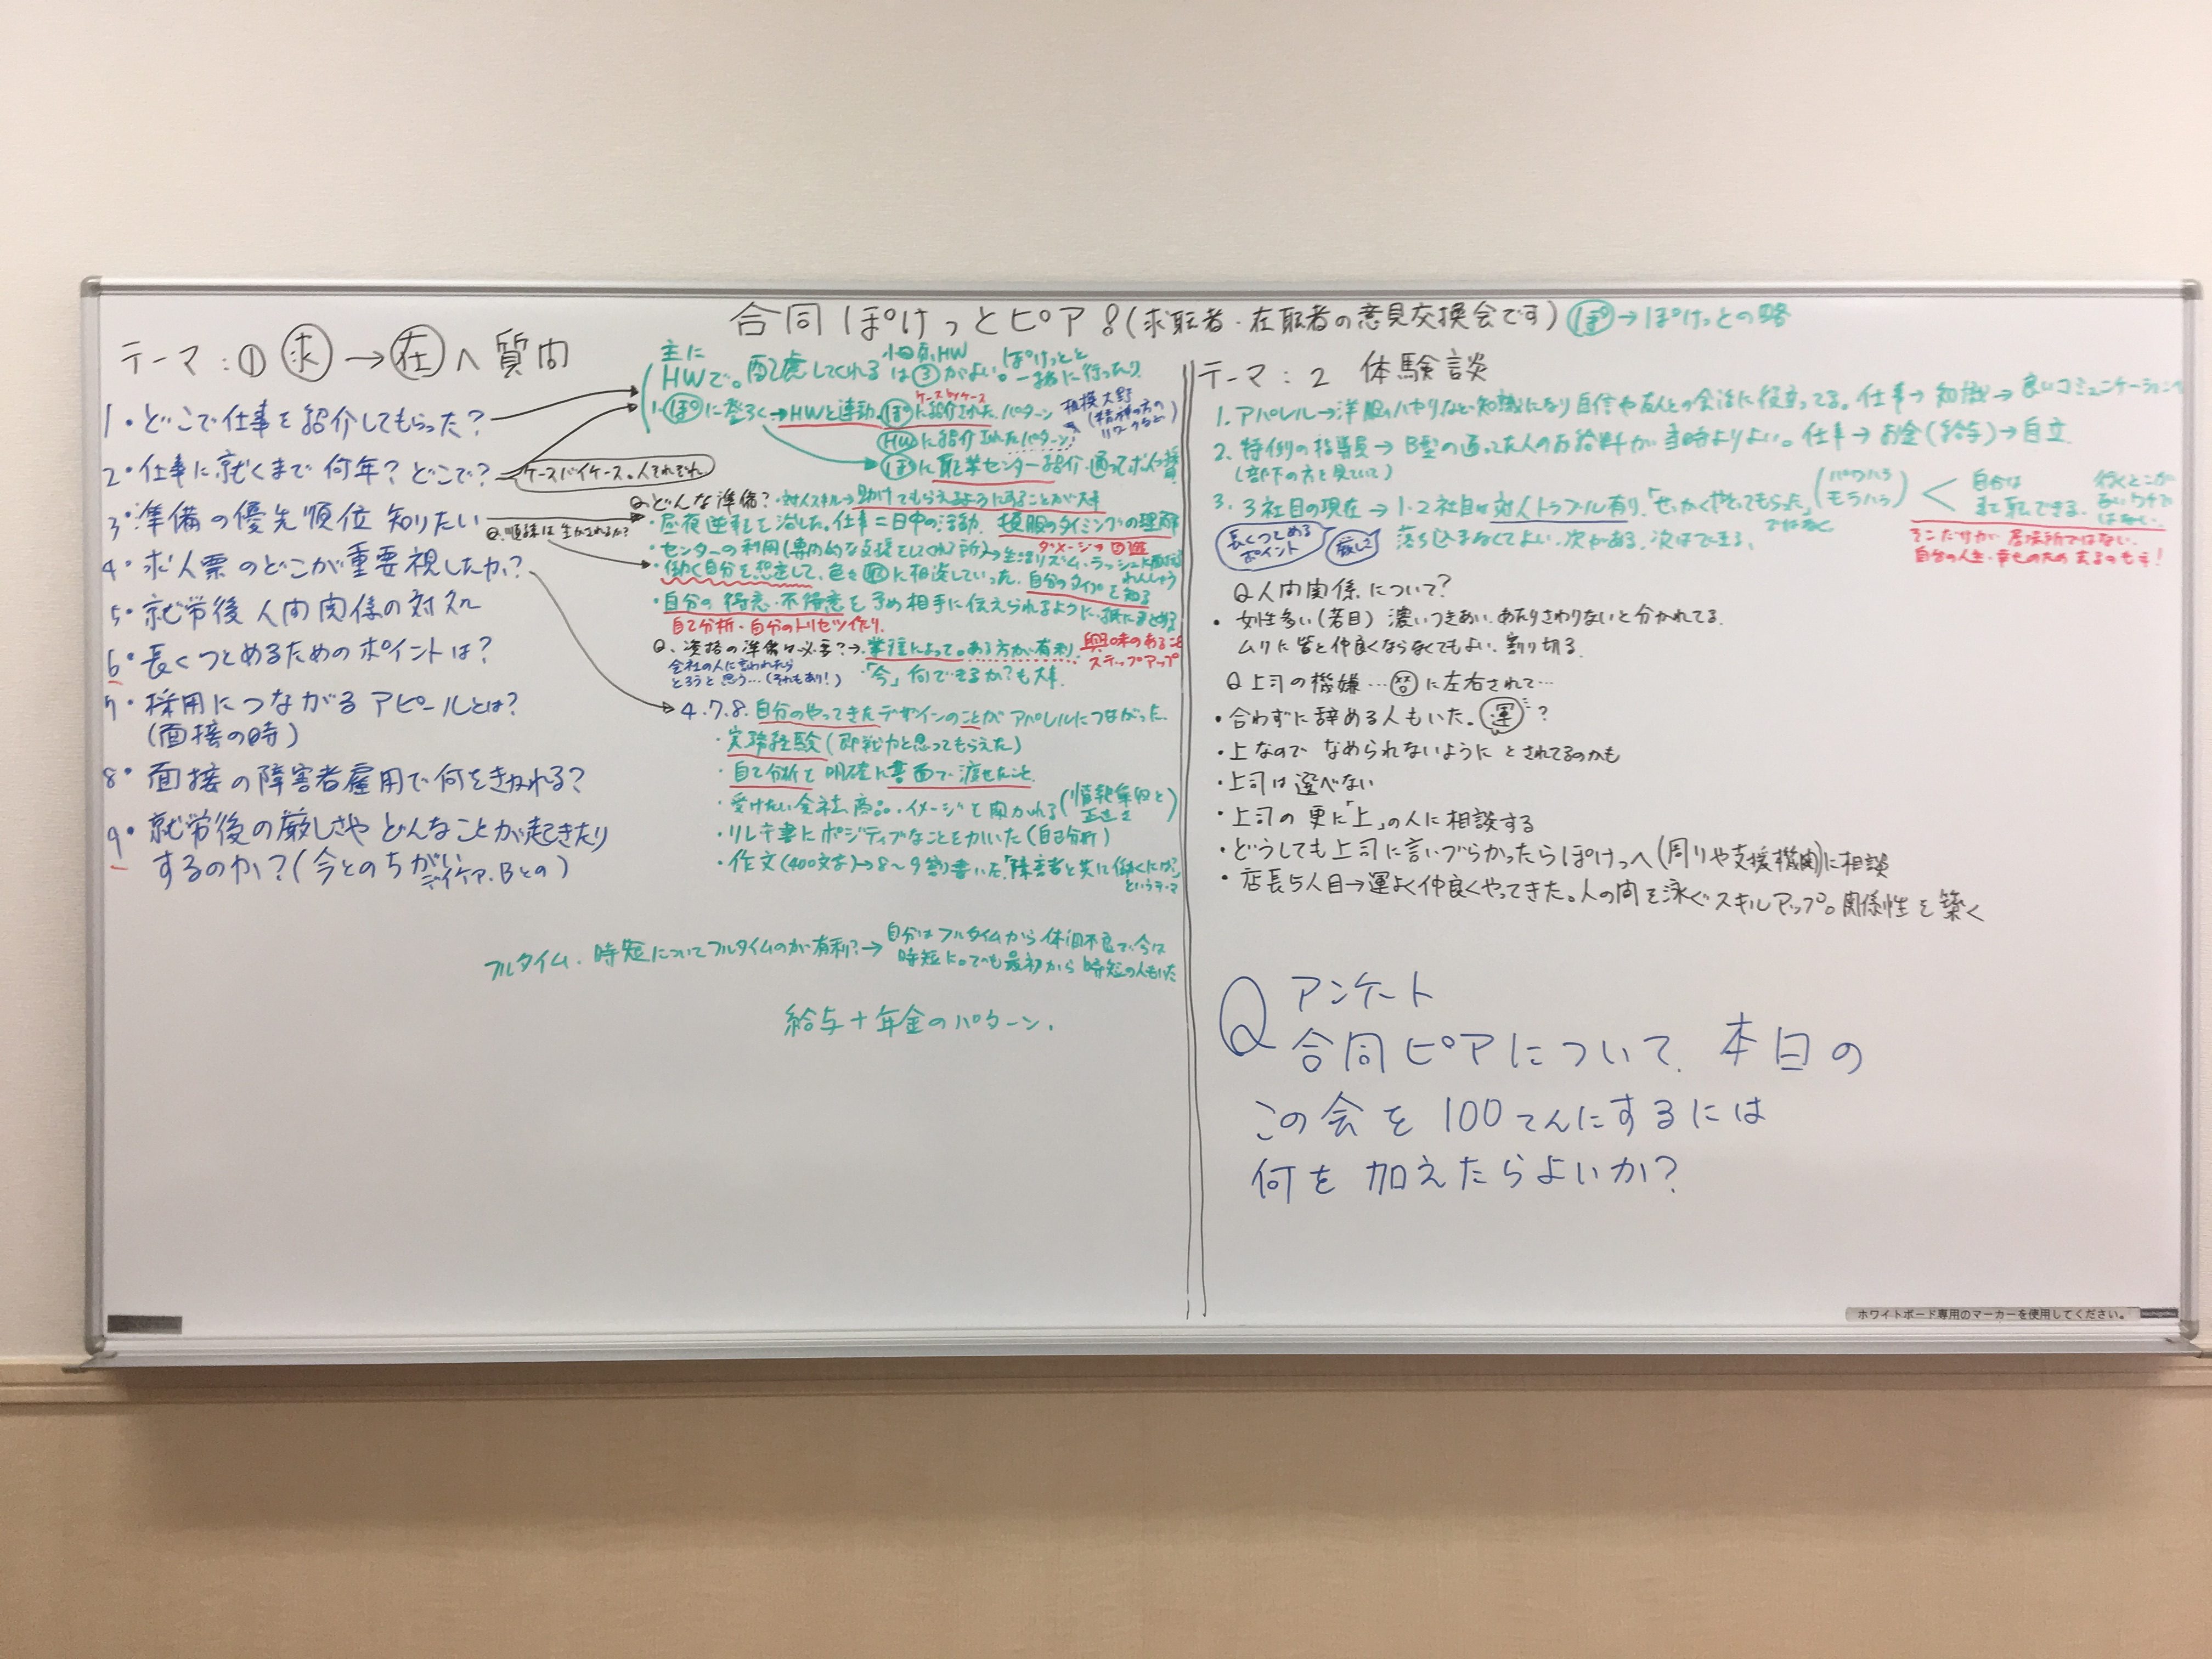 合同ぽけっとピア8(求職者・在職者の意見交換会です) ぽ→ぽけっとの略
テーマ:① 求→在へ質問
1・どこで仕事を紹介してもらった?
2・仕事に就くまで何年?どこで?
ケースバイケース。人それぞれ
3・準備の優先順位知りたい
4・求人票のどこが重要視したか?
5・就労後人間関係の対処
6・長くつとめるためのポイントは?
7・採用につながるアピールとは?
(面接の時)
8・面接の障害者雇用で何をきかれる?
9・就労後の厳しさやどんなことが起きたり
するのか?(今とのちがい
デイケア、Bとの)
主に
HWで。配慮してくれる
小田原HW
は③がよい。
ぽけっとと
一緒に行ったり
ケースbyケース
1・ぽに登ろく→HWと連動、ぽに紹介されたパターン
相模大野
(精神の方の
HWに紹介されたパターン
ぽに職業センター紹介・通って
Qどんな準備?・対人スキル→助けてもらえるようにすることが大事
・昼夜逆転を治した。仕事=日中の活動、頓服のタイミングの理解
ダメージの回避
・センターの利用(専門的な支援をしてくれる所)→生活リズム・ラッシュに
・働く自分を想定して、色々 に相談していった、自分のタイプを知る
・自分の得意・不得意を予め相手に伝えられるように・紙にまとめる
自己分析・自分のトリセツ作り
Q、資格の準備は必要?→業種によって。ある方が有利
興味のあること
ステップアップ
会社の人に言われたら
とろうと思う…(それもあり!)
・「今」何できるか?も大事
4.7.8.自分のやってきたデザインのことがアパレルにつながった
・実務経験(即戦力と思ってもらえた)
・自己分析を明確に書面で渡せたこと
・受けたい会社、商品・イメージを聞かれる(情報集収と
正直さ)
・リレキ書にポジティブなことをかいた(自己分析)
・作文(400文字)→8〜9割書いた「障害者と共に働くには?」
というテーマ
フルタイム、時短についてフルタイムのが有利?→自分はフルタイムから体調不良で今は
時短に。でも最初から時短の人もいた
給与+年金のパターン、
テーマ:2 体験談
1.アパレル→洋服のハヤリなど知識になり自信や友人との会話に役立ってる。仕事→知識→良いコミュニケーション
2.特例の指導員→B型の通ってた人のお給料が当時よりよい。仕事→お金(給与)→自立
(部下の方を見ていて)
3.3社目の現在→1・2社目は対人トラブル有り、「せっかくやとってもらった」
ではなく
(パワハラ
モラハラ)
自分は
また転できる
行くとこが
ないワケで
はない
長くつとめる
ポイント
厳しさ
落ち込まなくてよい、次がある、次はできる、
そこだけが居場所ではない
自分の人生・幸せのためあるのも手!
Q人間関係について?
・女性多い(若目)濃いつきあい・あたりさわりないと分かれてる
ムリに皆と仲良くならなくてもよい、割り切る
Q上司の機嫌… に左右されて…
・合わずに辞める人もいた。運?
・上なのでなめられないようにとされてるのかも
・上司は選べない
・上司の更に「上」の人に相談する
・どうしても上司に言いづらかったらぽけっへ(周りや支援機関)に相談
・店長5人目→運よく仲良くやってきた。人の間を泳ぐスキルアップ。関係性を築く
Qアンケート
合同ピアについて、本日の
この会を100てんにするには
何を加えたらよいか?
ホワイトボード専用のマーカーを使用してください。